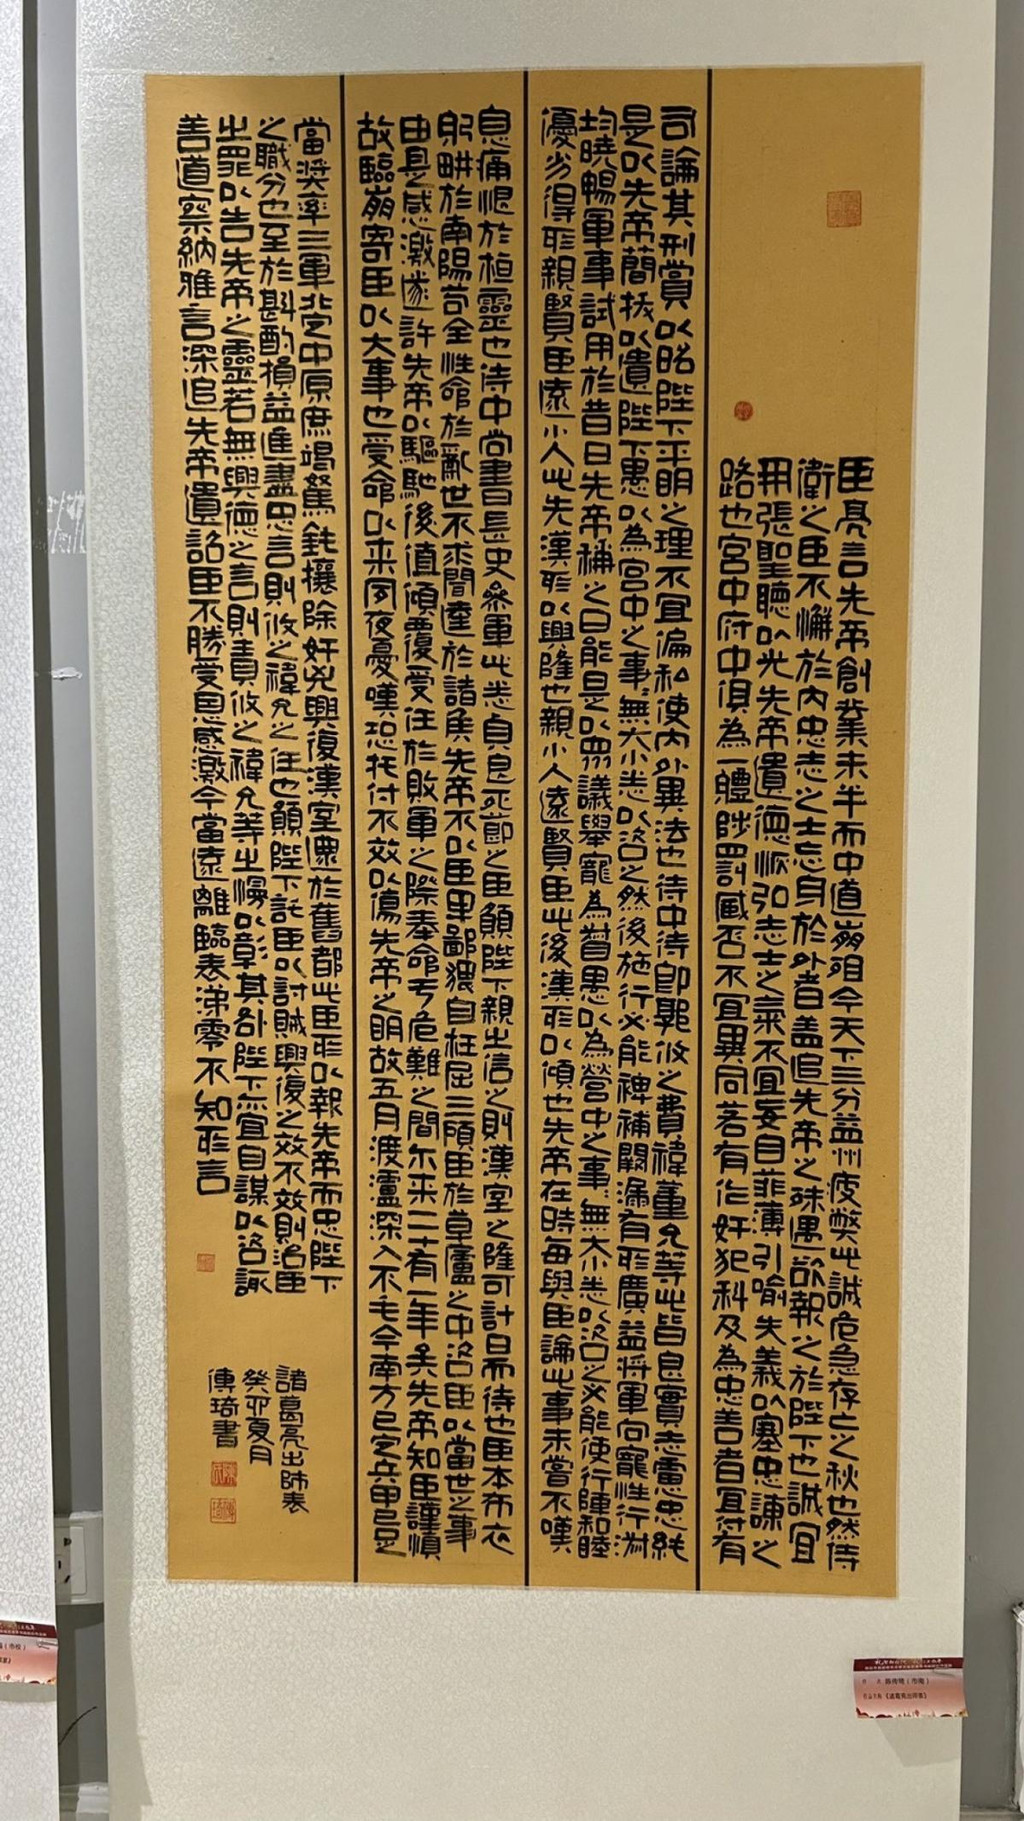 臣亮言先帝創業未半而中道崩殂今天下三分益州疲弊此誠危急存亡之秋也然侍
衛之臣不懈於內忠志之士忘身於外者蓋追先帝之殊遇欲報之於陛下也誠宜
開張聖聽以光先帝遺德恢弘志士之氣不宜妄自菲薄引喻失義以塞忠諫之
路也宮中府中俱為一體陟罰臧否不宜異同若有作奸犯科及為忠善者宜付有
司論其刑賞以昭陛下平明之理不宜偏私使內外異法也侍中侍郎郭攸之費禕董允等此皆良實志慮忠純
是以先帝簡拔以遺陛下愚以為宮中之事無大小悉以咨之然後施行必能裨補闕漏有所廣益將軍向寵性行淑
均曉暢軍事試用於昔日先帝稱之曰能是以眾議舉寵為督愚以為營中之事無大小悉以咨之必能使行陣和睦
優劣得所親賢臣遠小人此先漢所以興隆也親小人遠賢臣此後漢所以傾也先帝在時每與臣論此事未嘗不嘆
息痛恨於桓靈也侍中尚書長史參軍此悉貞良死節之臣願陛下親之信之則漢室之隆可計日而待也臣本布衣
躬耕於南陽苟全性命於亂世不求聞達於諸侯先帝不以臣卑鄙猥自枉屈三顧臣於草廬之中咨臣以當世之事
由是感激遂許先帝以驅馳後值傾覆受任於敗軍之際奉命于危難之間尓来二十有一年矣先帝知臣謹慎
故臨崩寄臣以大事也受命以来夙夜憂嘆恐托付不效以傷先帝之明故五月渡瀘深入不毛今南方已定兵甲已足
當奨率三軍北定中原庶竭駑鈍攘除奸兇興復漢室還於舊都此臣所以報先帝而忠陛下
之職分也至於斟酌損益進盡忠言則攸之禕允之任也願陛下託臣以討賊興復之效不效則治臣
之罪以告先帝之靈若無興德之言則責攸之禕允等之慢以彰其咎陛下亦宜自謀以咨諏
善道察納雅言深追先帝遺詔臣不勝受恩感激今當遠離臨表涕零不知所言
諸葛亮出師表
癸卯夏月
傳琦書